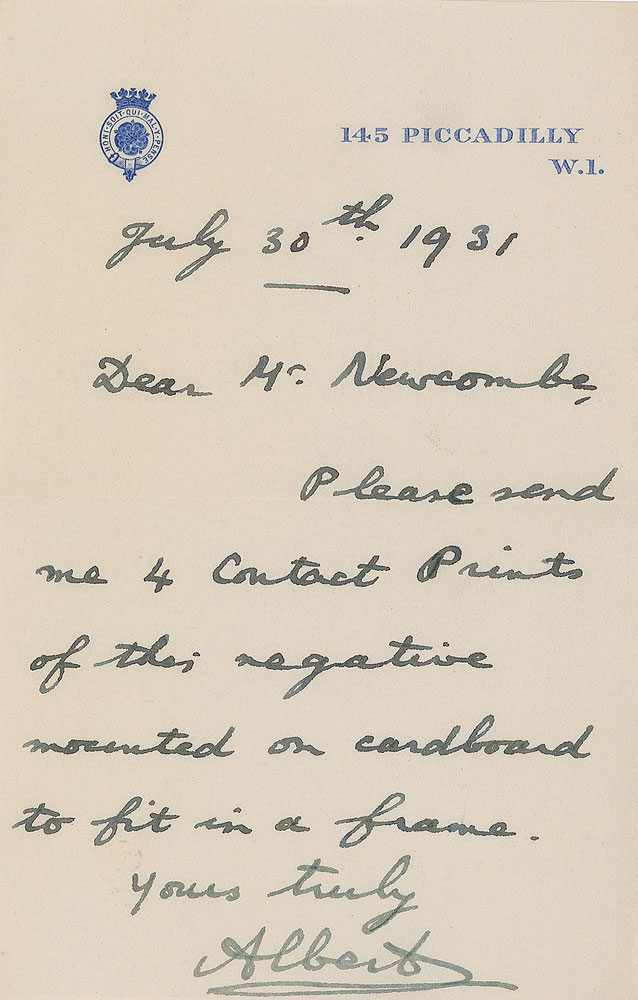 HONI·SOIT·QUI·MAL·Y·PENSE
145 PICCADILLY
W.1.
July 30th 1931
Dear Mr. Newcombe,
Please send
me 4 Contact Prints
of this negative
mounted on cardboard
to fit in a frame.
Yours truly
Albert